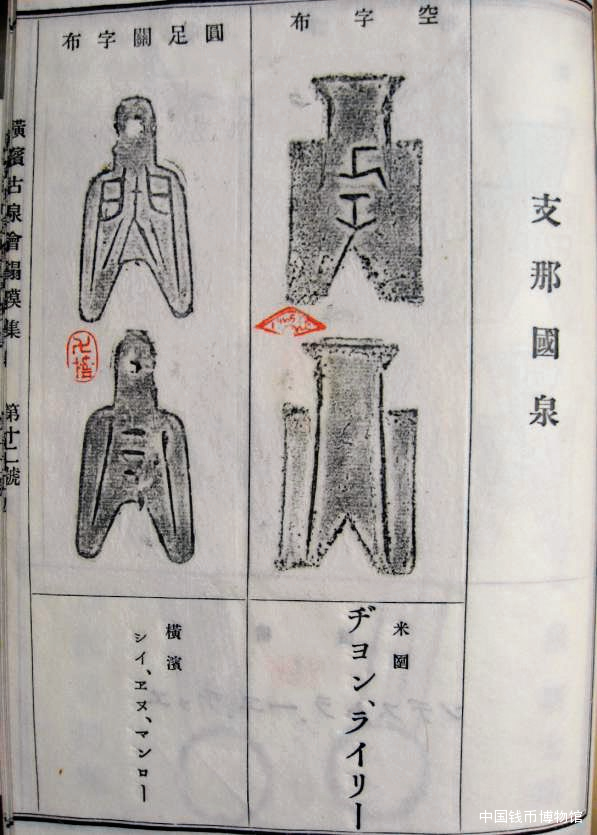 支那國泉
空字布
米國
ヂヨン、ライリー
圓足關字布
横濱
シイ、ヱヌ、マンロー
横濱古泉會搨摸集 第十二號
中国钱币博物馆